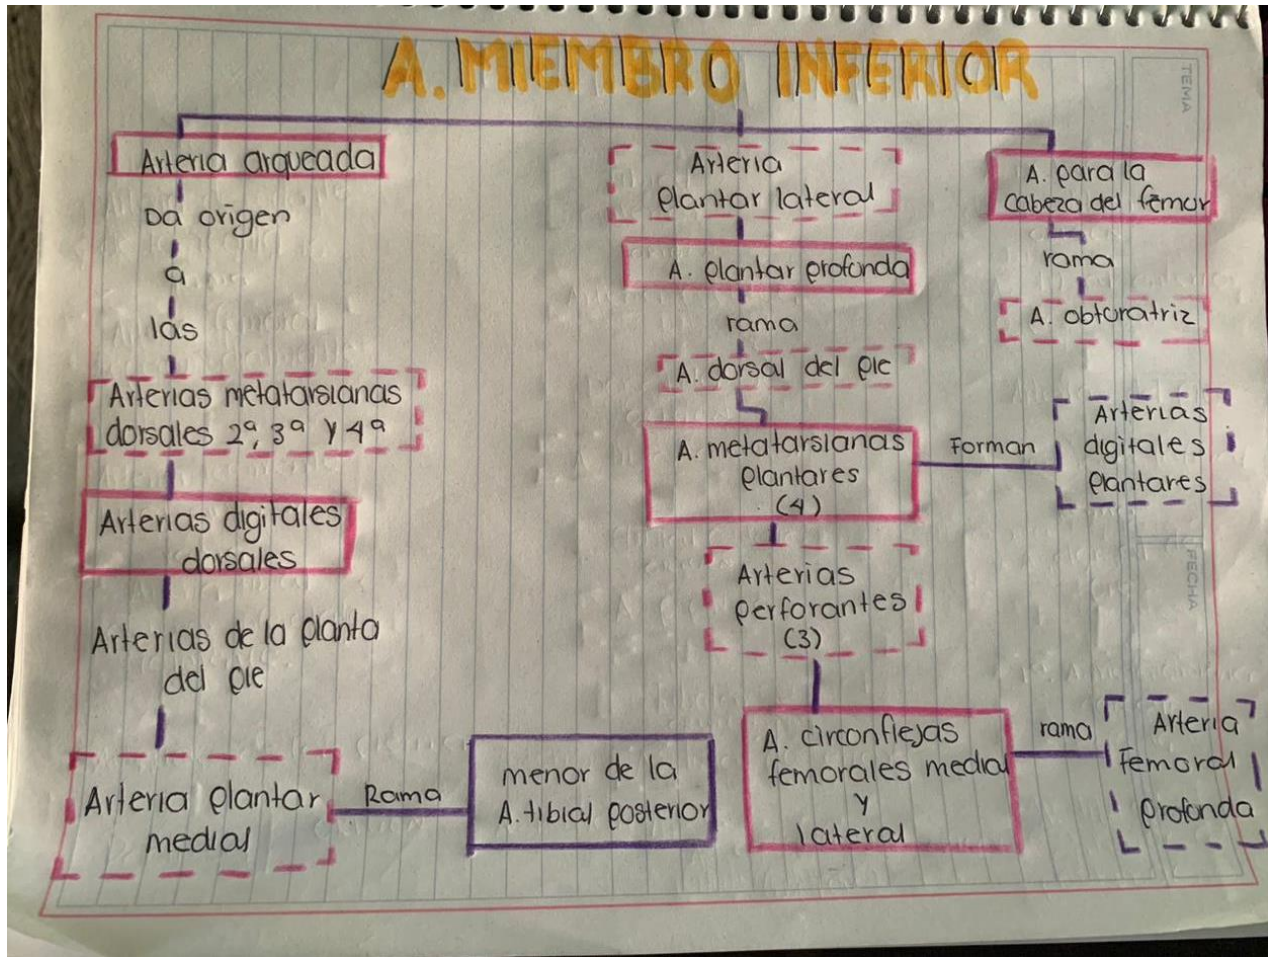 A. MIEMBRO INFERIOR
TEMA
Arteria arqueada
Da origen
a
las
Arterias metatarsianas
dorsales 2ª, 3ª y 4ª
Arterias digitales
dorsales
Arterias de la planta
del pie
Arteria plantar
medial
Rama
menor de la
A. tibial posterior
Arteria
plantar lateral
A. plantar profunda
rama
A. dorsal del pie
A. metatarsianas
plantares
(4)
Forman
Arterias
digitales
plantares
Arterias
perforantes
(3)
A. circonflejas
femorales medial
y
lateral
rama
Arteria
Femoral
profunda
A. para la
cabeza del femur
rama
A. obturatriz
FECHA